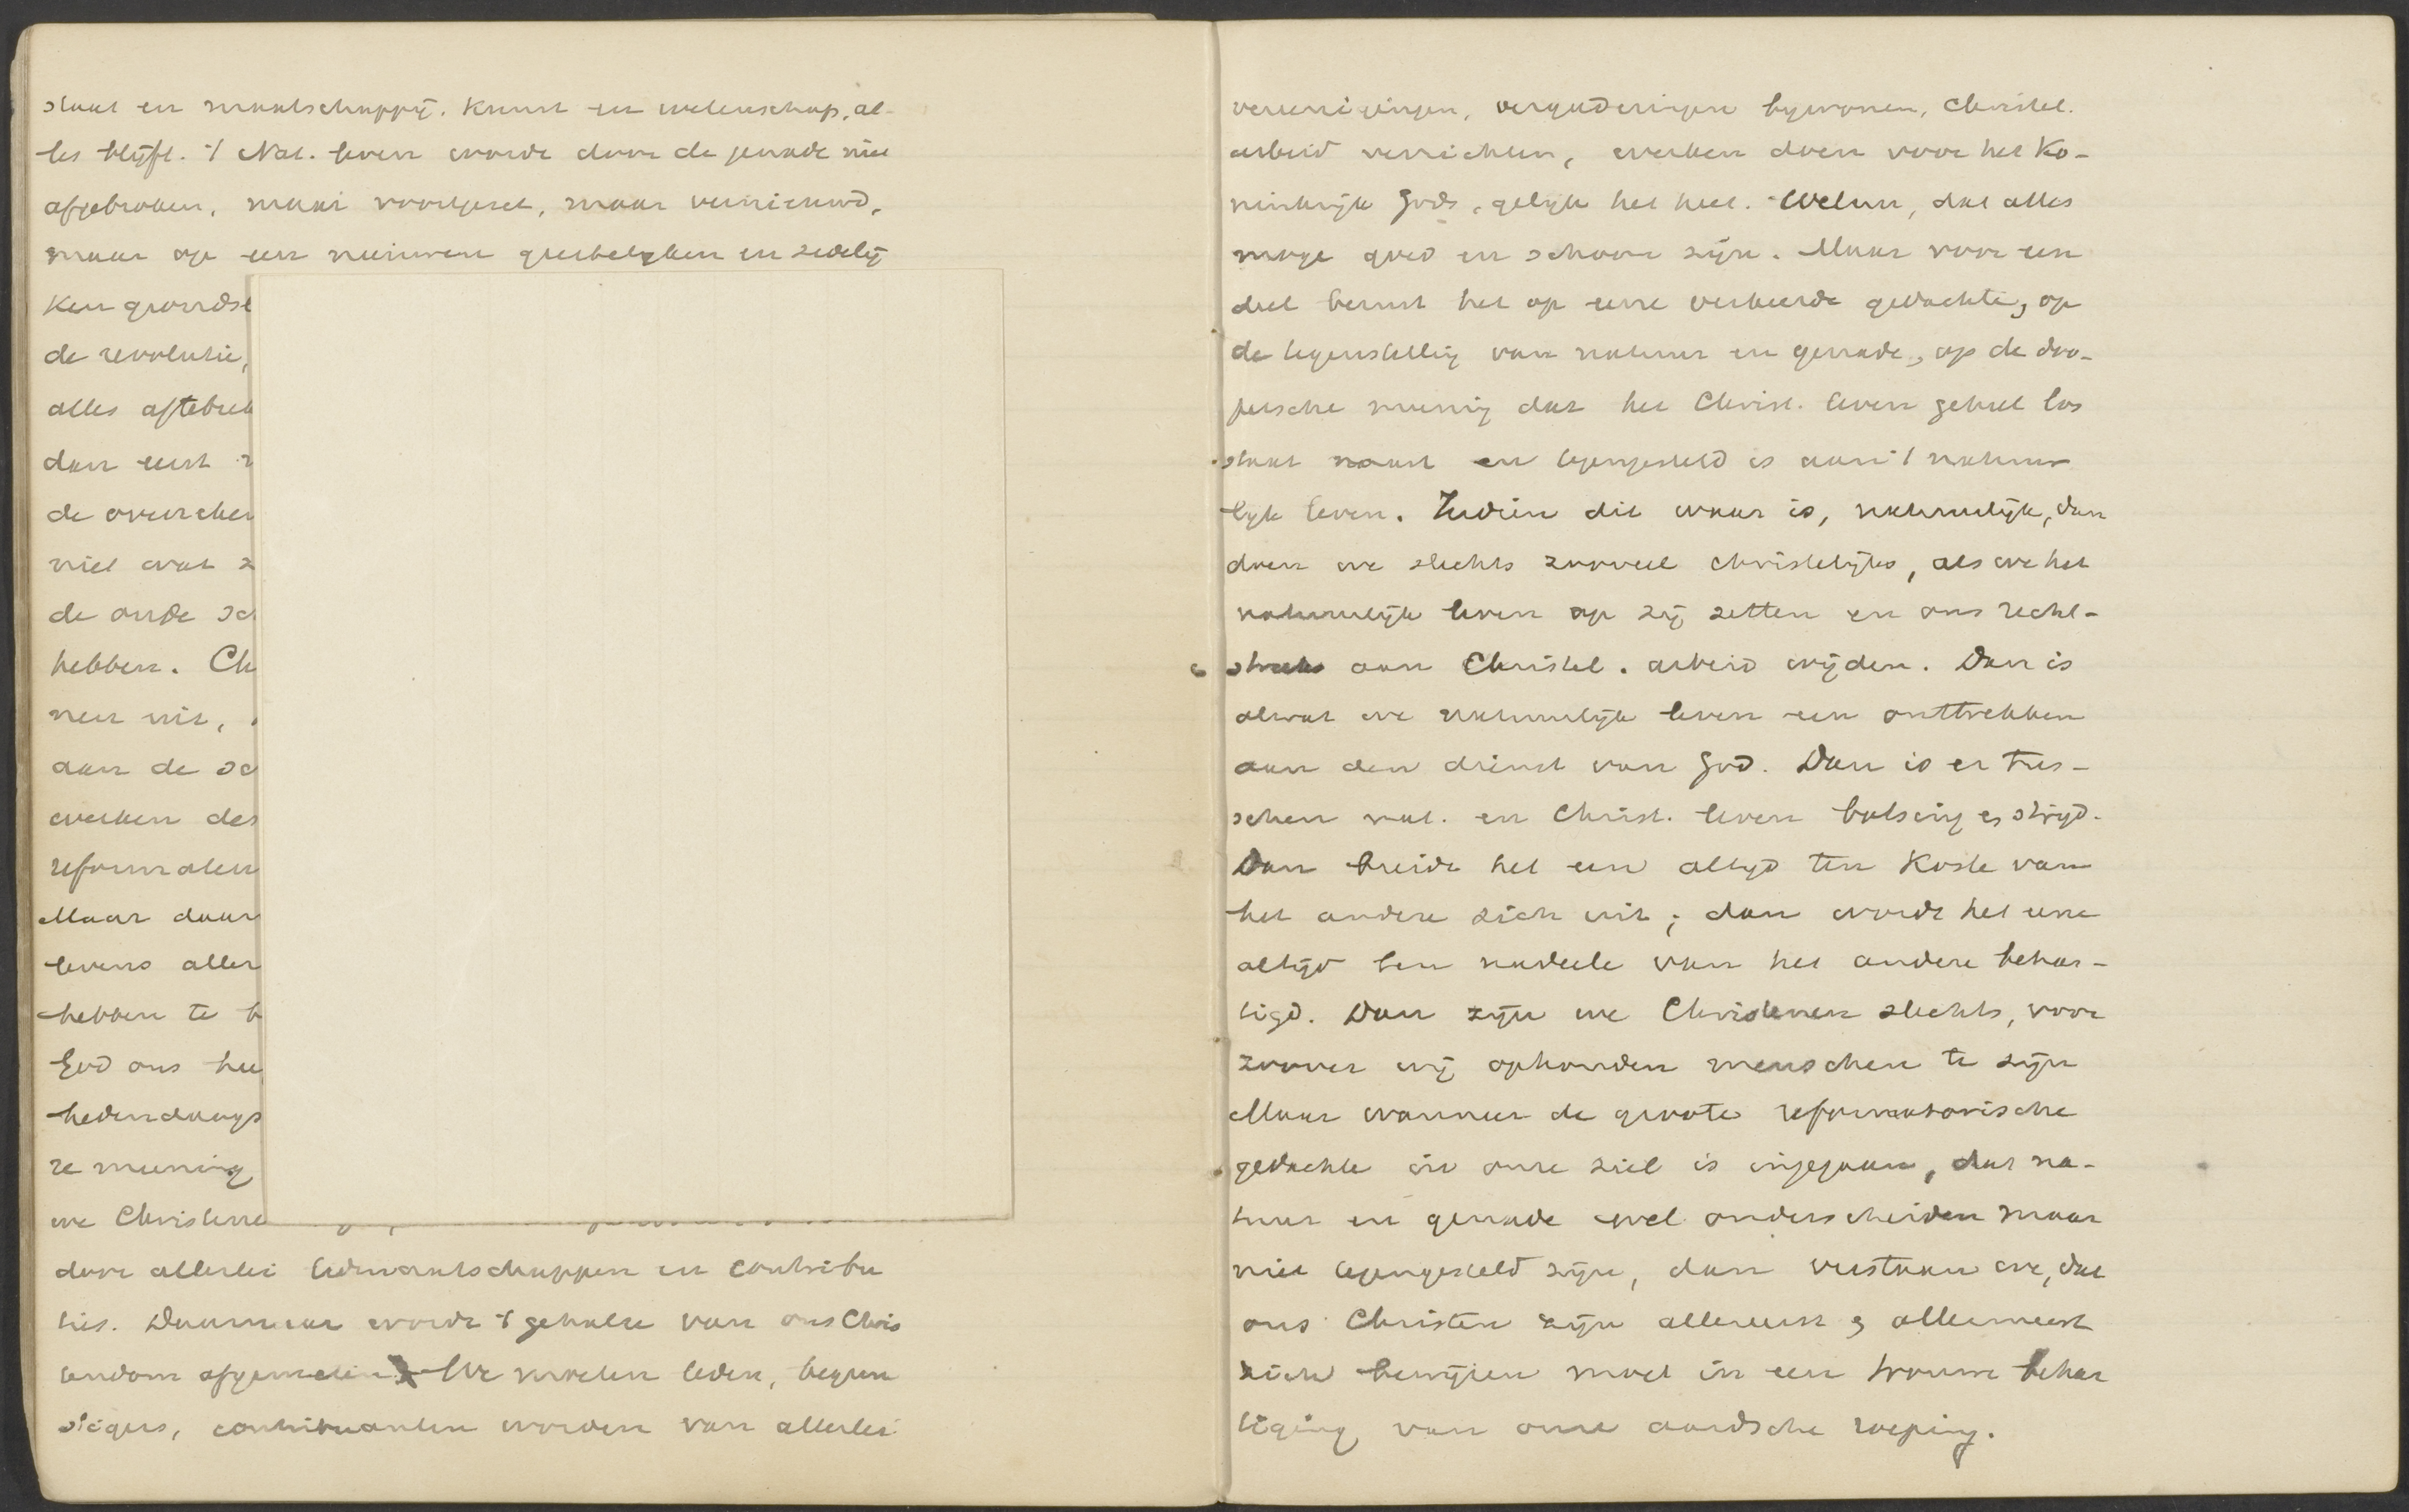 staat en maatschappij. Kunst en wetenschap, al-
les blijft. 't Nat. leven wordt door de genade niet
afgebroken, maar voortgezet, maar vernieuwd,
maar op een nieuwen geestelyken en zedelij
ken grondsl
de revolutie,
alles aftebrek
dan eerst
de oversche
niet wat z
de oude sc
hebben. Ch
nen uit,
aan de sc
werken des
reformaten
Maar daar
levens aller
hebben te b
God ons hee
hedendaags
re meening
we Christene
door allerlei lidmaatschappen en contribu
ties. Daarnaar wordt 't gehalte van ons Chris
tendom afgemeten. We moeten leden, begun
stigers, contribuanten worden van allerlei
vereenigingen, vergaderingen bywonen, Christel.
arbeid verrichten, werken doen voor het Ko-
ninkrijk Gods, gelijk het heet. Welnu, dat alles
moge goed en schoon zijn. Maar voor een
deel berust het op eene verkeerde gedachte, op
de tegenstelling van natuur en genade, op de doo-
persche meening dat het Christ. leven geheel los
staat naast en tegengesteld is aan 't natuur
lyk leven. Indien dit waar is, natuurlijk, dan
doen we slechts zooveel christelijks, als we het
natuurlijk leven op zij zetten en ons recht-
streeks aan Christel. arbeid wijden. Dan is
alwat we natuurlijk leven een onttrekken
aan den dienst van God. Dan is er tus-
schen nat. en Christ. leven botsing & strijd.
Dan breidt het een altijd ten koste van
het andere zich uit; dan wordt het eene
altijd ten nadeele van het andere behar-
tigd. Dan zijn we Christenen slechts, voor
zoover wij ophouden menschen te zijn
Maar wanneer de groote reformatorische
gedachte in onze ziel is ingegaan, dat na-
tuur en genade wel onderscheiden maar
niet tegengesteld zijn, dan verstaan we, dat
ons Christen zijn allereerst & allermeest
zich bewijzen moet in een trouwe behar
tiging van onze aardsche roeping.